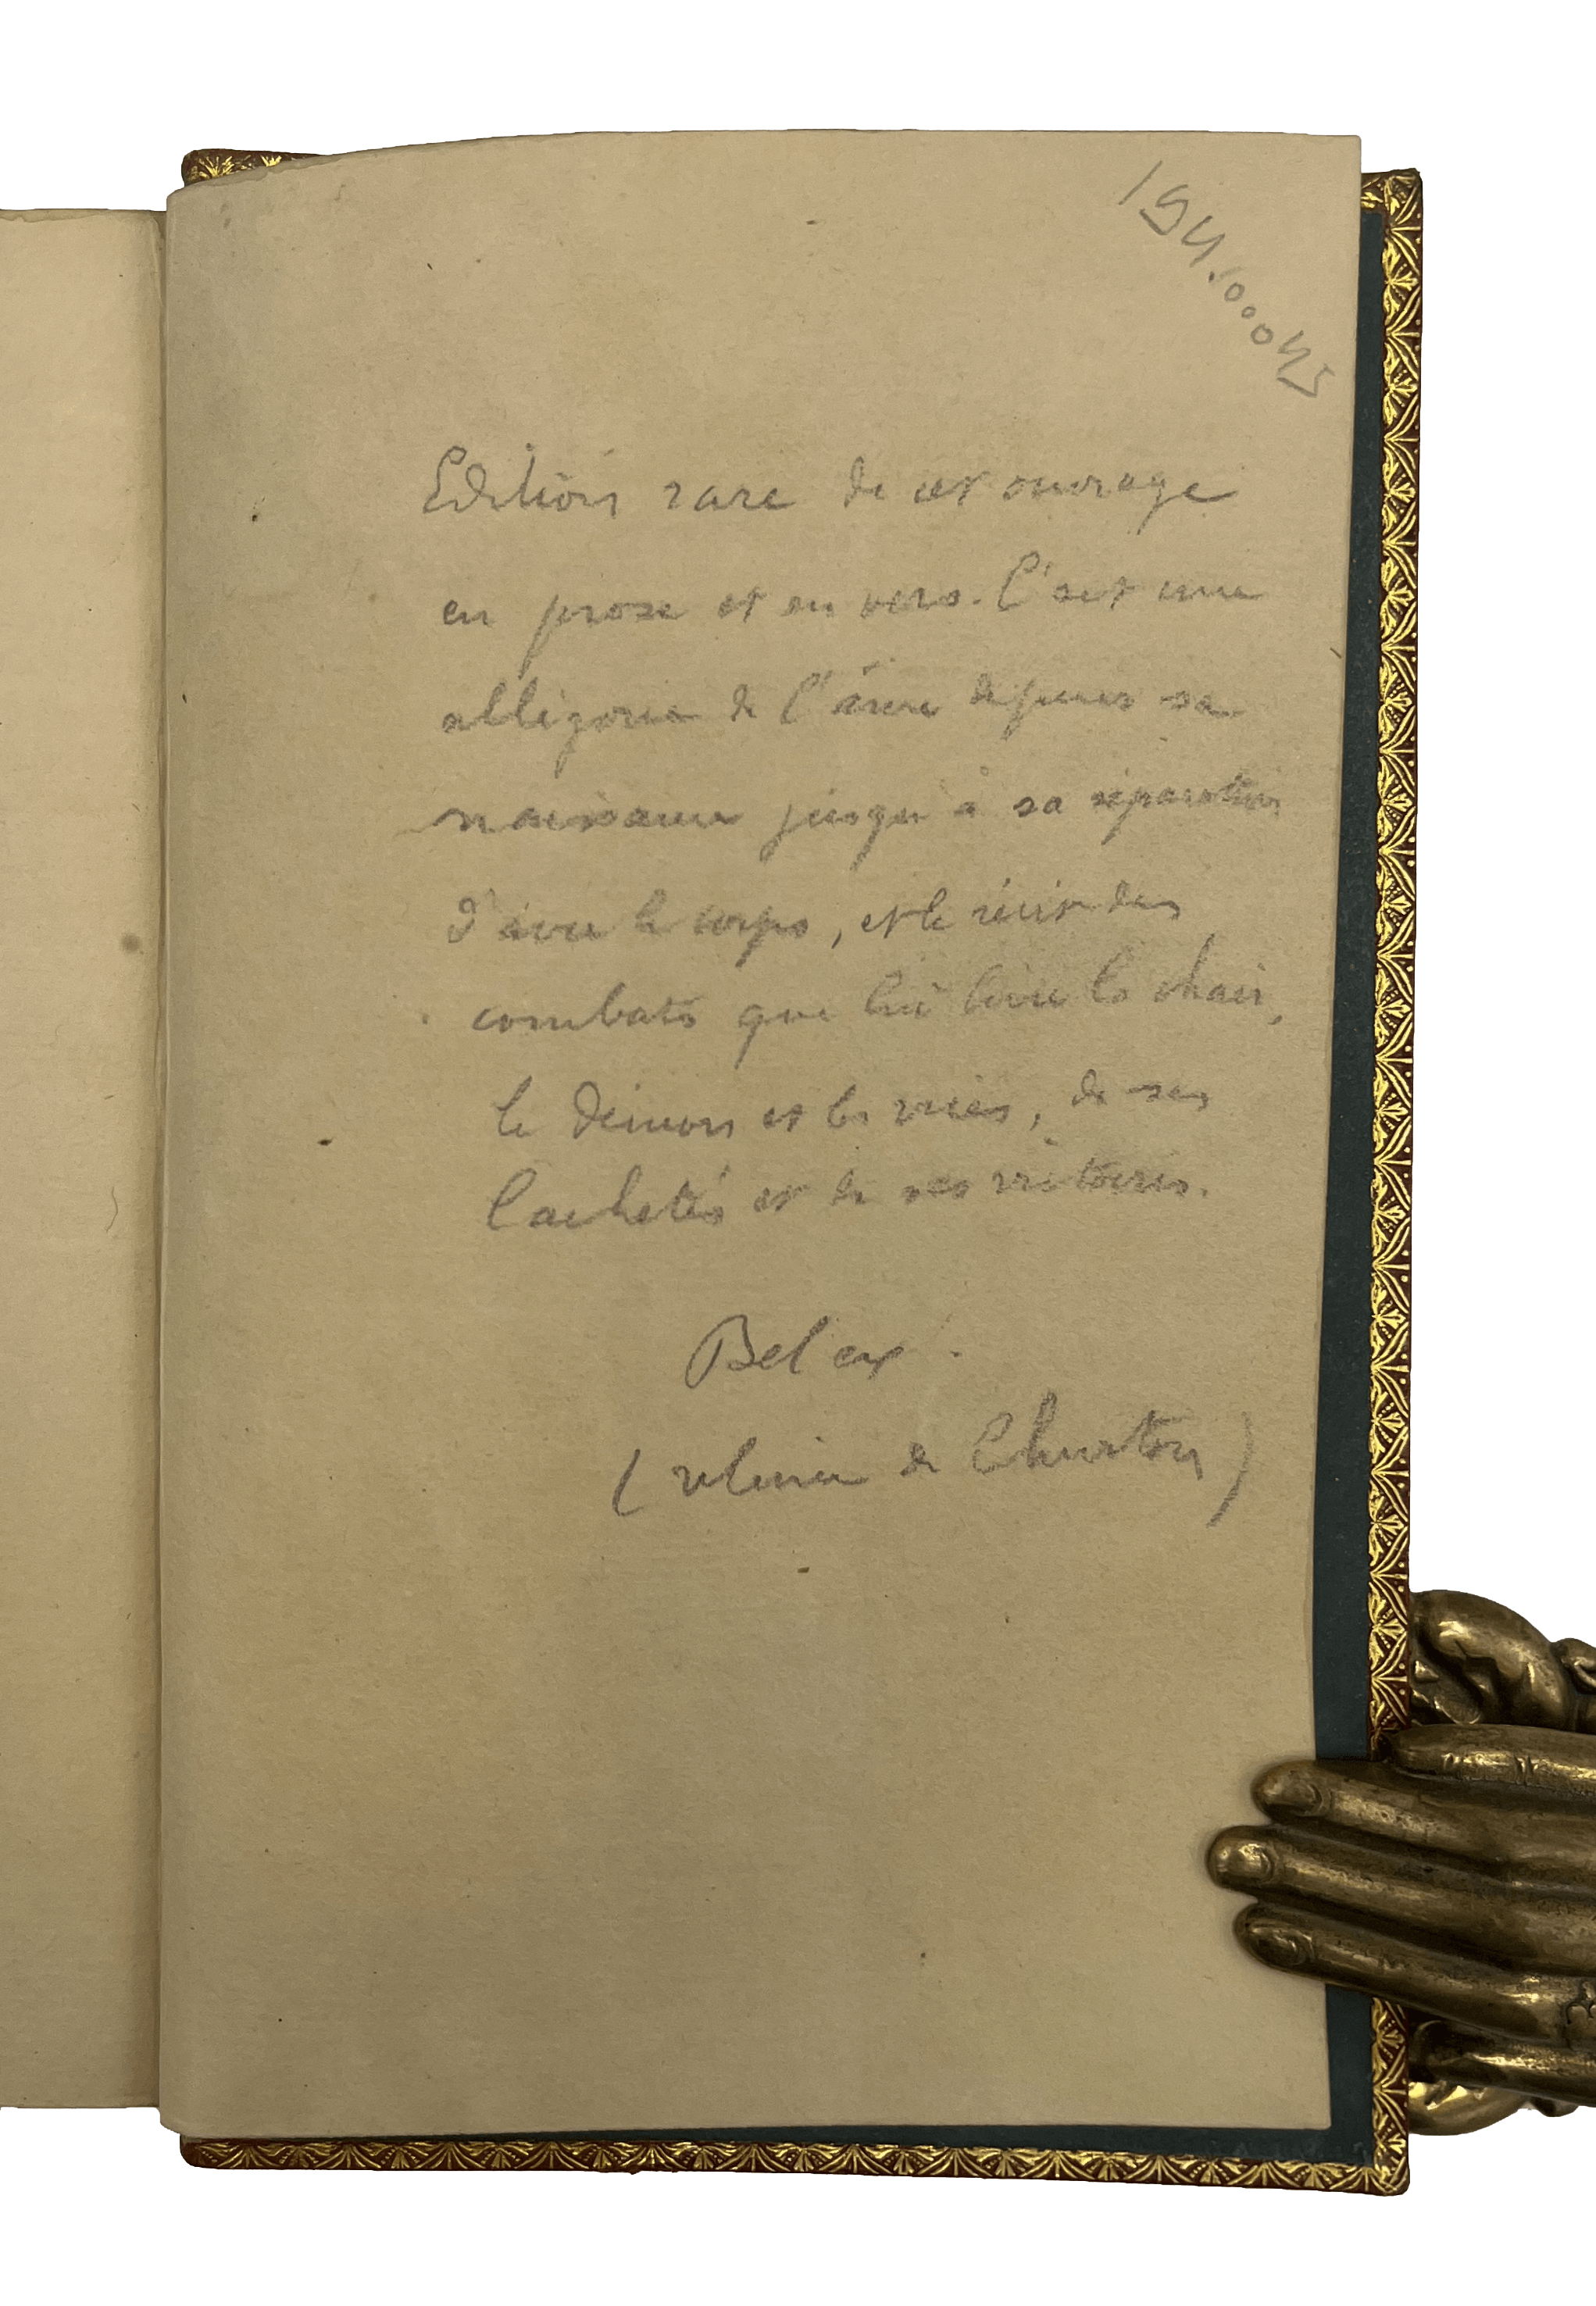 Edition rare de cet ouvrage
en prose et en vers. C'est une
allégorie de l'âme depuis sa
naissance jusqu'à sa séparation
d'avec le corps, et le récit des
combats que lui livre la chair,
le démon et les vices, de ses
lachetés et de ses victoires.
Bel ex.
(reliure de